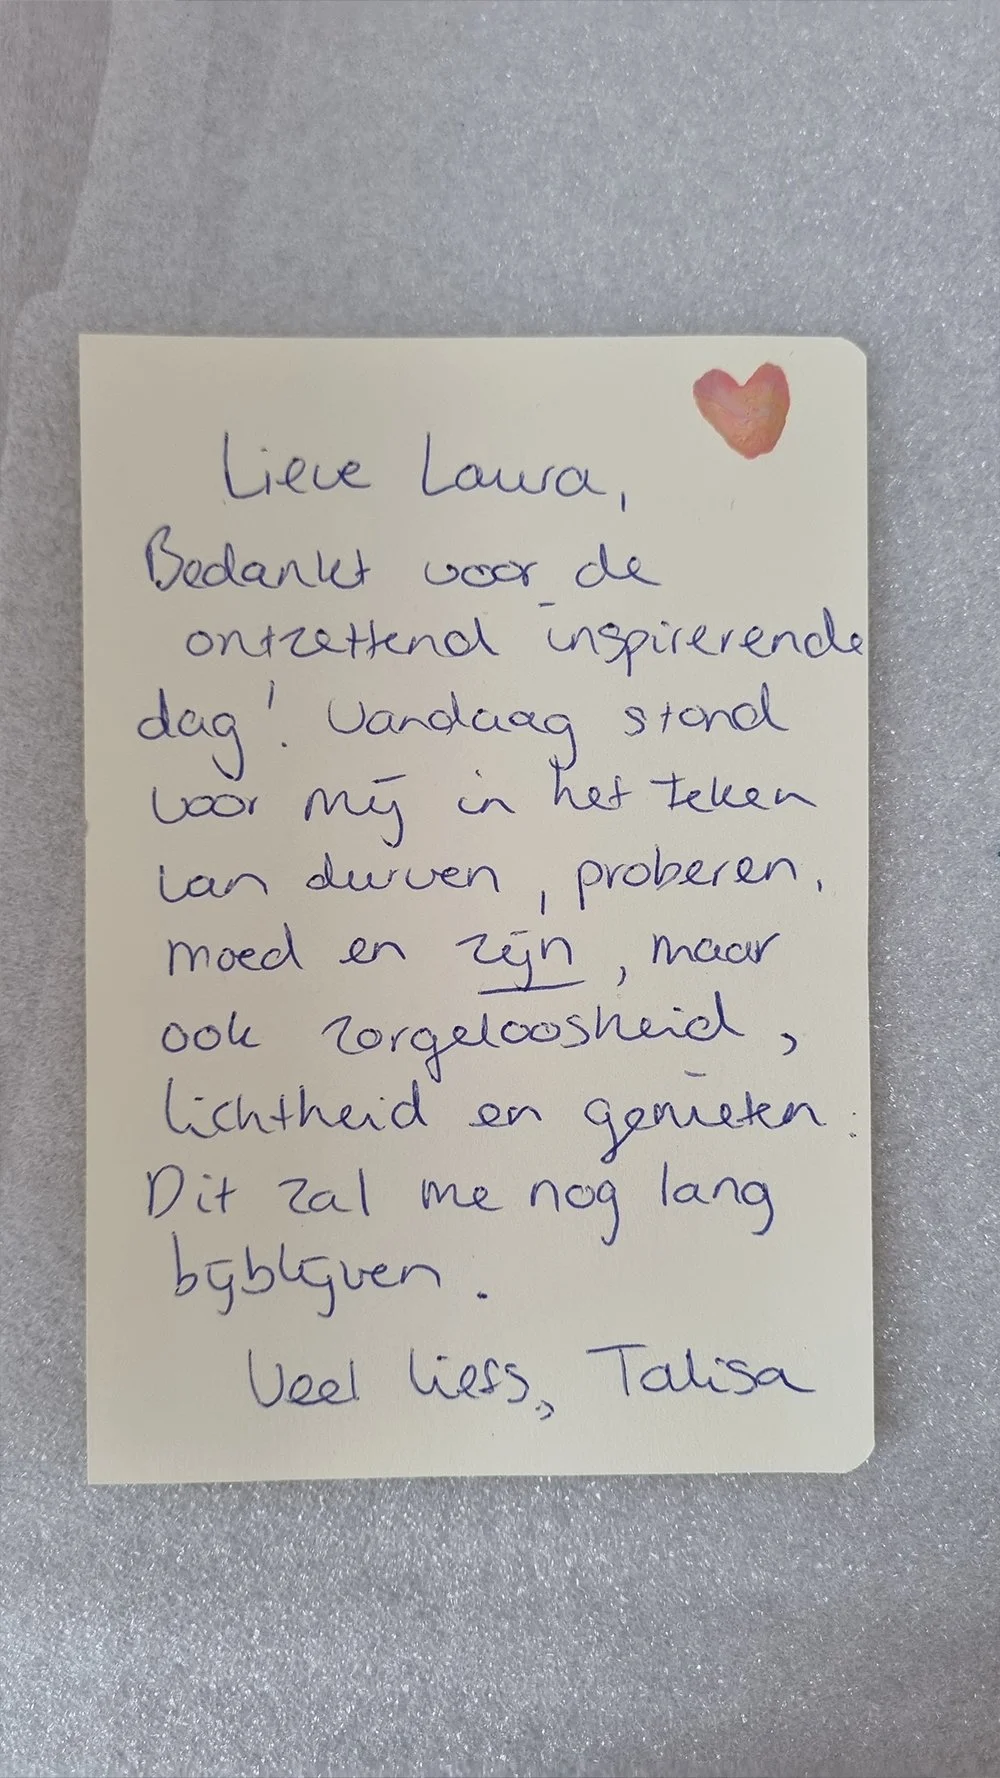 Lieve Laura,
Bedankt voor de
ontzettend inspirerende
dag! Vandaag stond
voor mij in het teken
van durven, proberen,
moed en zijn, maar
ook zorgeloosheid,
lichtheid en genieten.
Dit zal me nog lang
bijblijven.
Veel liefs, Talisa